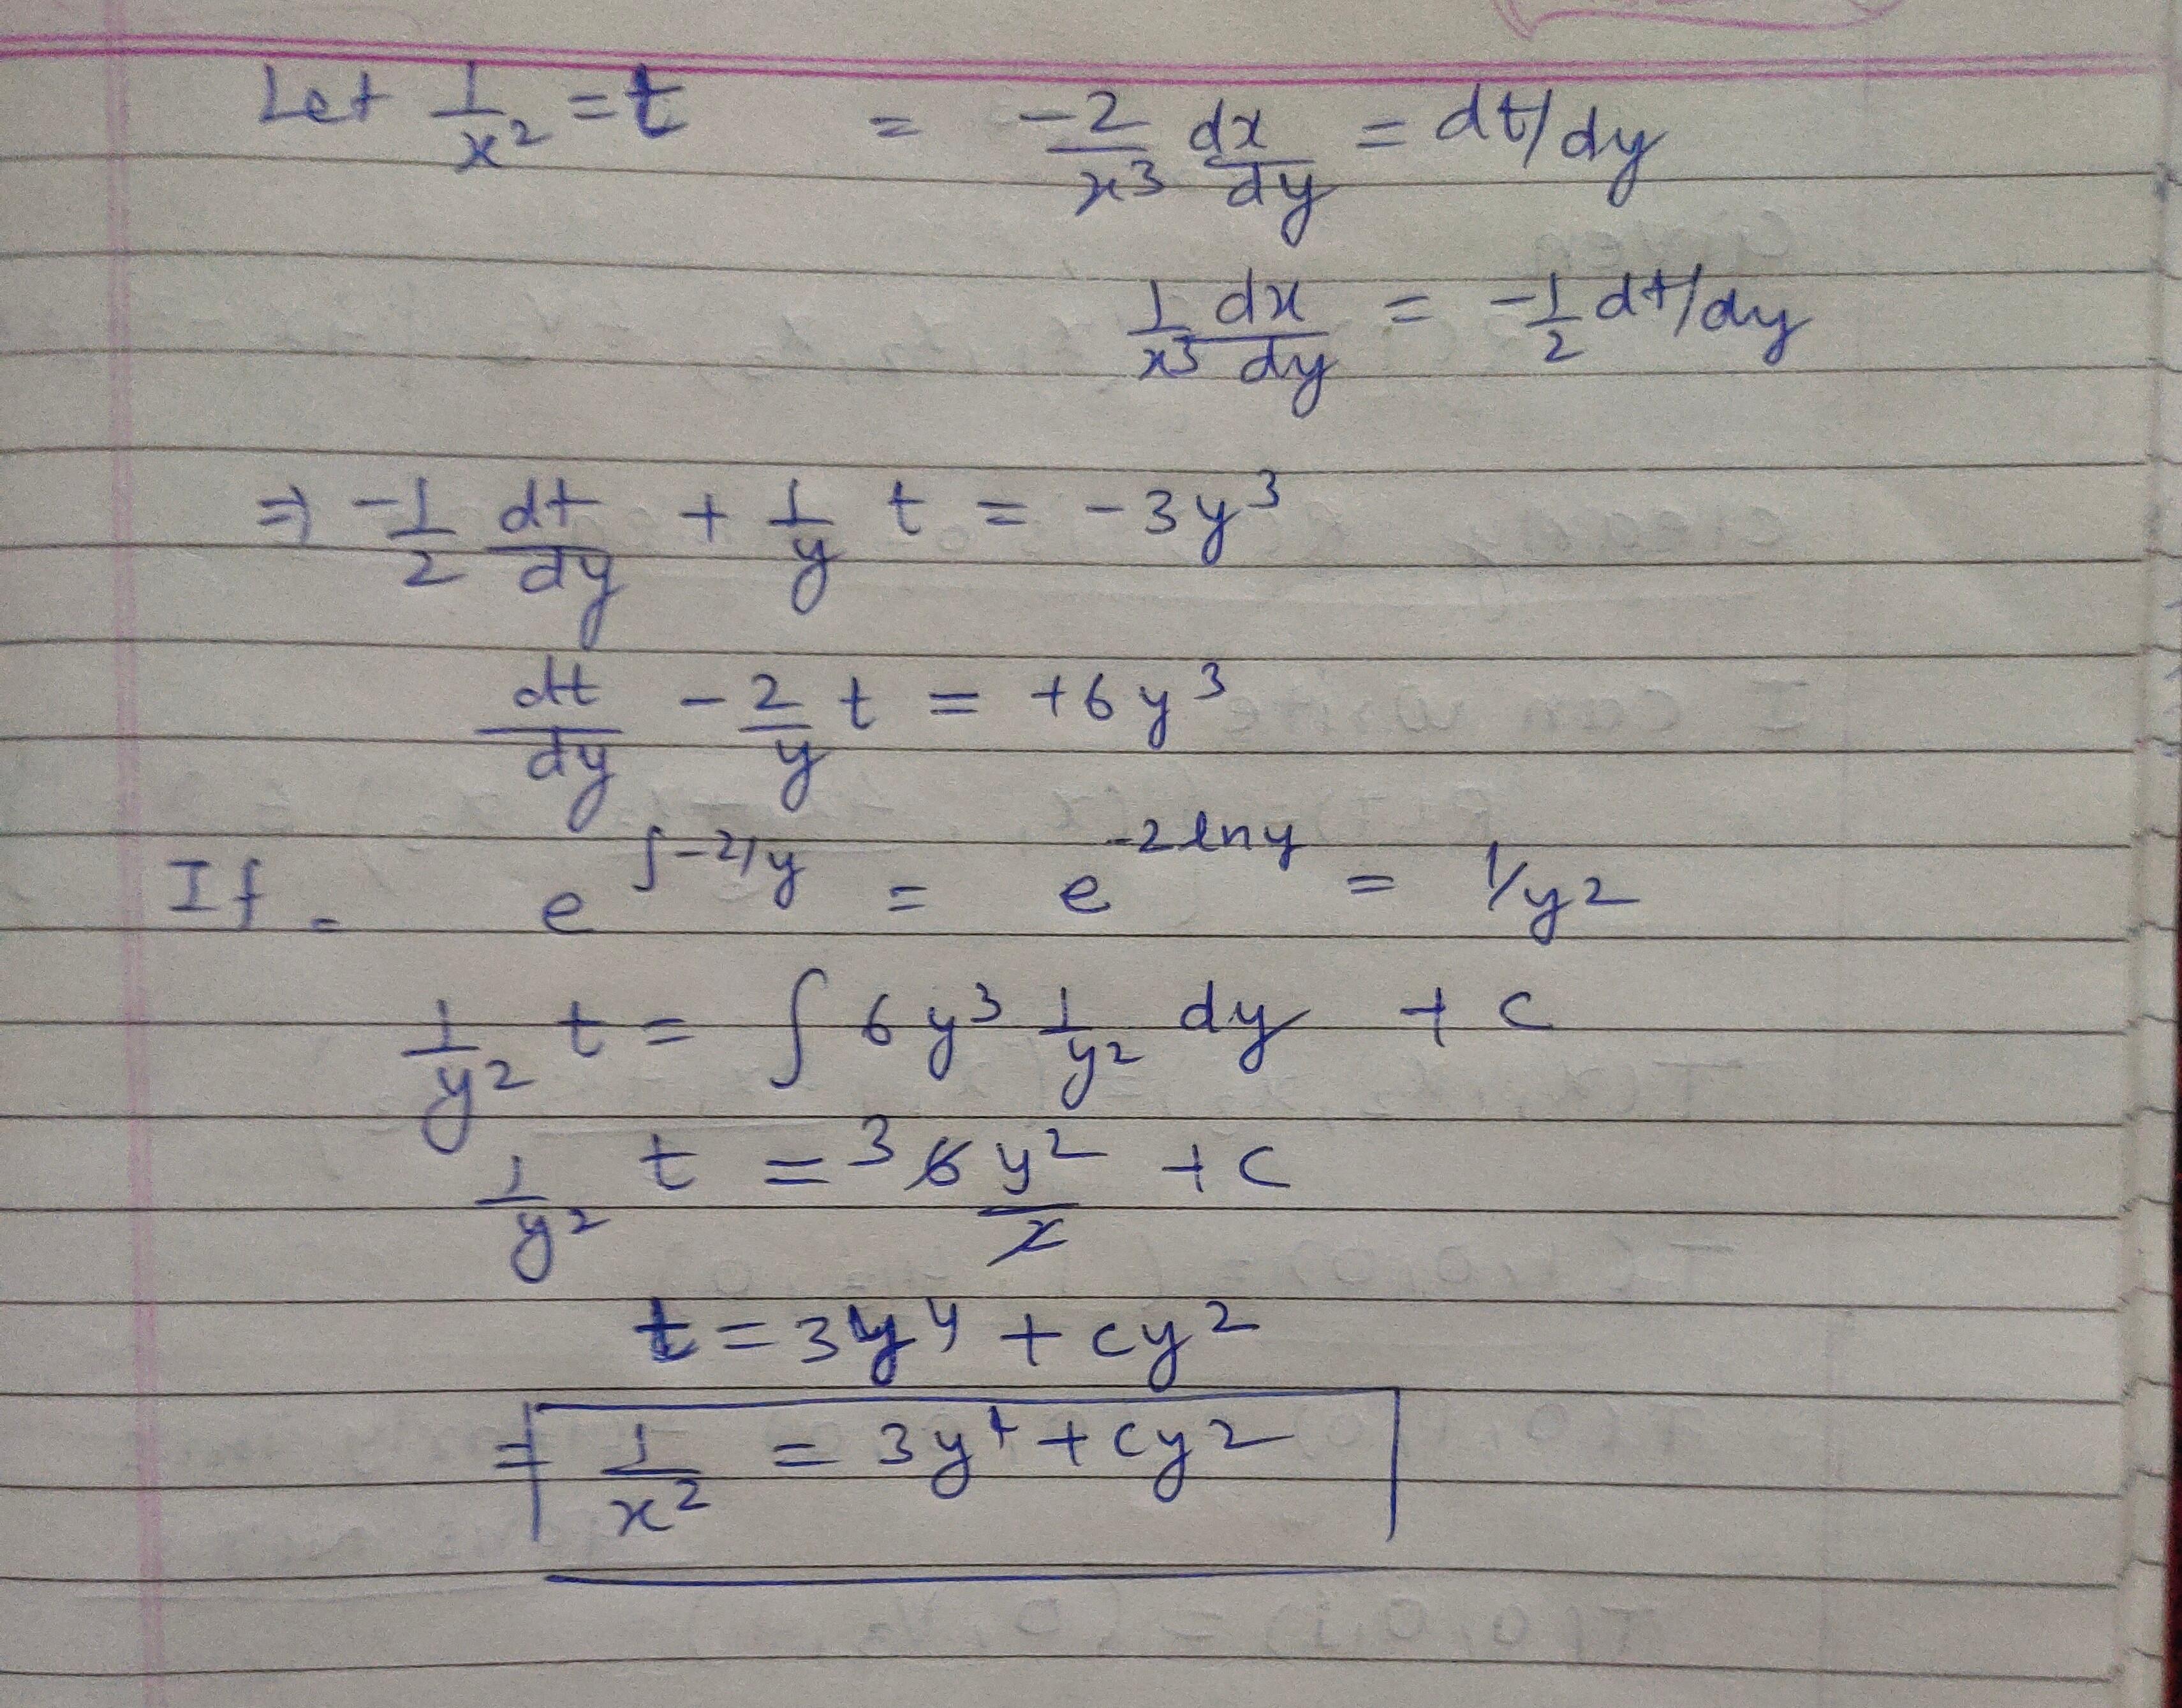 Let 1/x² = t = -2/x³ dx/dy = dt/dy
1/x³ dx/dy = -1/2 dt/dy
⇒ -1/2 dt/dy + 1/y t = -3y³
dt/dy - 2/y t = +6y³
If = e^∫-2/y = e^-2lny = 1/y²
1/y² t = ∫ 6y³ 1/y² dy + c
1/y² t = 3 6 y²/2 + c
t = 3y⁴ + cy²
= 1/x² = 3y⁴ + cy²